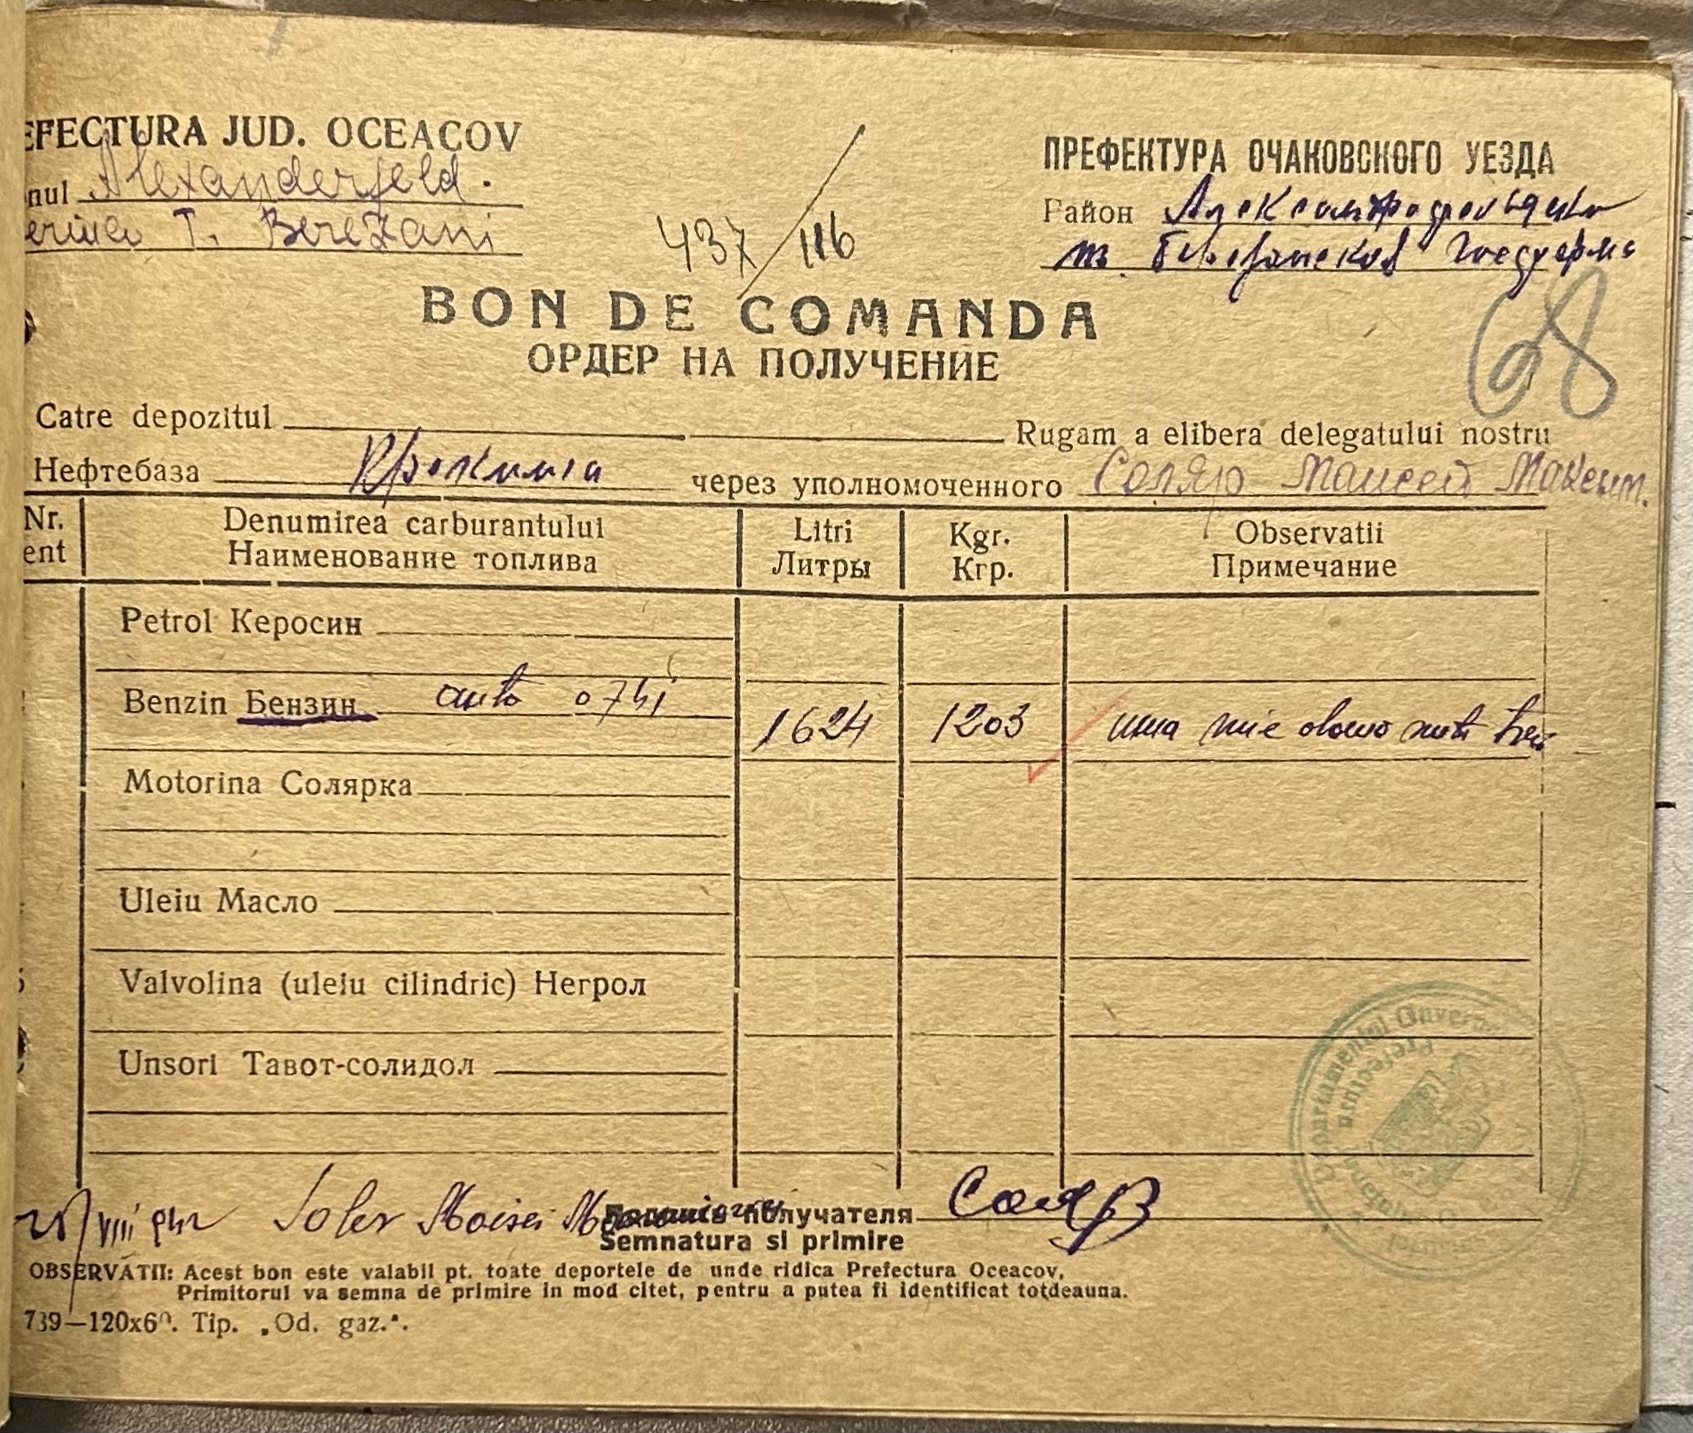 EFECTURA JUD. OCEACOV
nul Alexanderfeld.
T. Berezani
437/116
ПРЕФЕКТУРА ОЧАКОВСКОГО УЕЗДА
Район
68
BON DE COMANDA
ОРДЕР НА ПОЛУЧЕНИЕ
Catre depozitul Rugam a elibera delegatului nostru
Нефтебаза через уполномоченного Соляр Маисей
Nr. ent Denumirea carburantului Litri Kgr. Observatii
Наименование топлива Литры Кгр. Примечание
Petrol Керосин
Benzin Бензин auto 0741 1624 1203 una mie doua sute trei
Motorina Солярка
Uleiu Масло
Valvolina (uleiu cilindric) Негрол
Unsori Тавот-солидол
Departamentul Guvern
Prefectura
Soler Moisei
Подпись получателя Соляр
Semnatura si primire
OBSERVĂTII: Acest bon este valabil pt. toate deportele de unde ridica Prefectura Oceacov,
Primitorul va semna de primire in mod citet, pentru a putea fi identificat totdeauna.
739—120x60. Tip. „Od. gaz.".